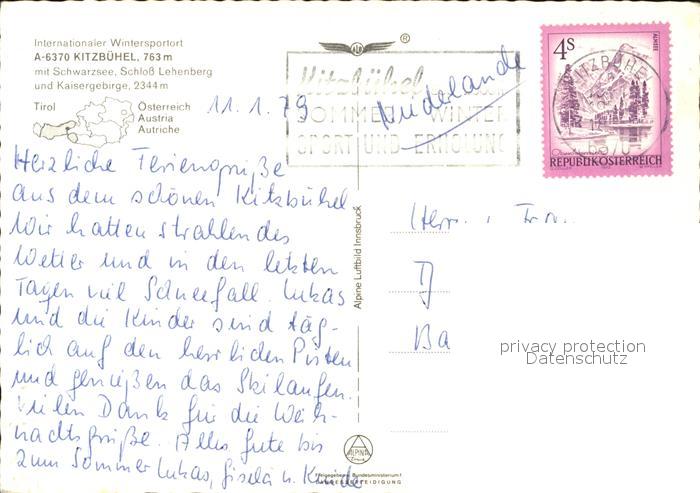 Internationaler Wintersportort
A-6370 KITZBÜHEL, 763 m
mit Schwarzsee, Schloß Lehenberg
und Kaisergebirge, 2344 m
Tirol
Österreich
Austria
Autriche
11.1.79
Herzliche Feriengrüße
aus dem schönen Kitzbühel
Wir hatten strahlendes
Wetter und in den letzten
Tagen viel Schneefall. Lukas
und die Kinder sind täg-
lich auf den herrlichen Pisten
und genießen das Skilaufen.
Vielen Dank für die Weih-
nachtsgrüße. Alles Gute bis
zum Sommer Lukas, Gisela u. Kinder
ALR
®
Kitzbühel
SOMMER WINTER
SPORT UND ERHOLUNG
Niederlande
4S
ALMSEE
REPUBLIK ÖSTERREICH
KITZBÜHEL
6370
Alpine Luftbild Innsbruck
Herr. u. Frn.
Ba
privacy protection
Datenschutz
ALPINA
Freigegeben: Bundesministerium f.
LANDESVERTEIDIGUNG